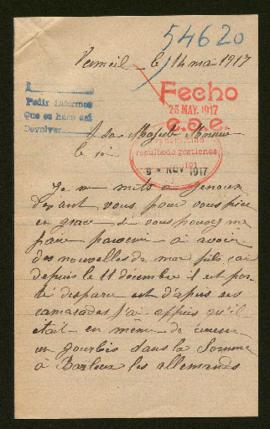 54620
Verneil le 14 mai 1917
Fecho
25 MAY. 1917
C.O.E.
Pedir informes
Que se haga así
Devolver
A sa Majesté Monsieur
le roi
resultado gestiones
9 NOV 1917
Je me mets à genoux
devant vous pour vous prier
en grace si vous pouvez me
faire parvenir à avoir
des nouvelles de mon fils car
depuis le 11 décembre il est por
té disparu et d'après ses
camarades j'ai appris qu'il
était en même de creuser
un gourbis dans la Somme
à Barleux les allemands